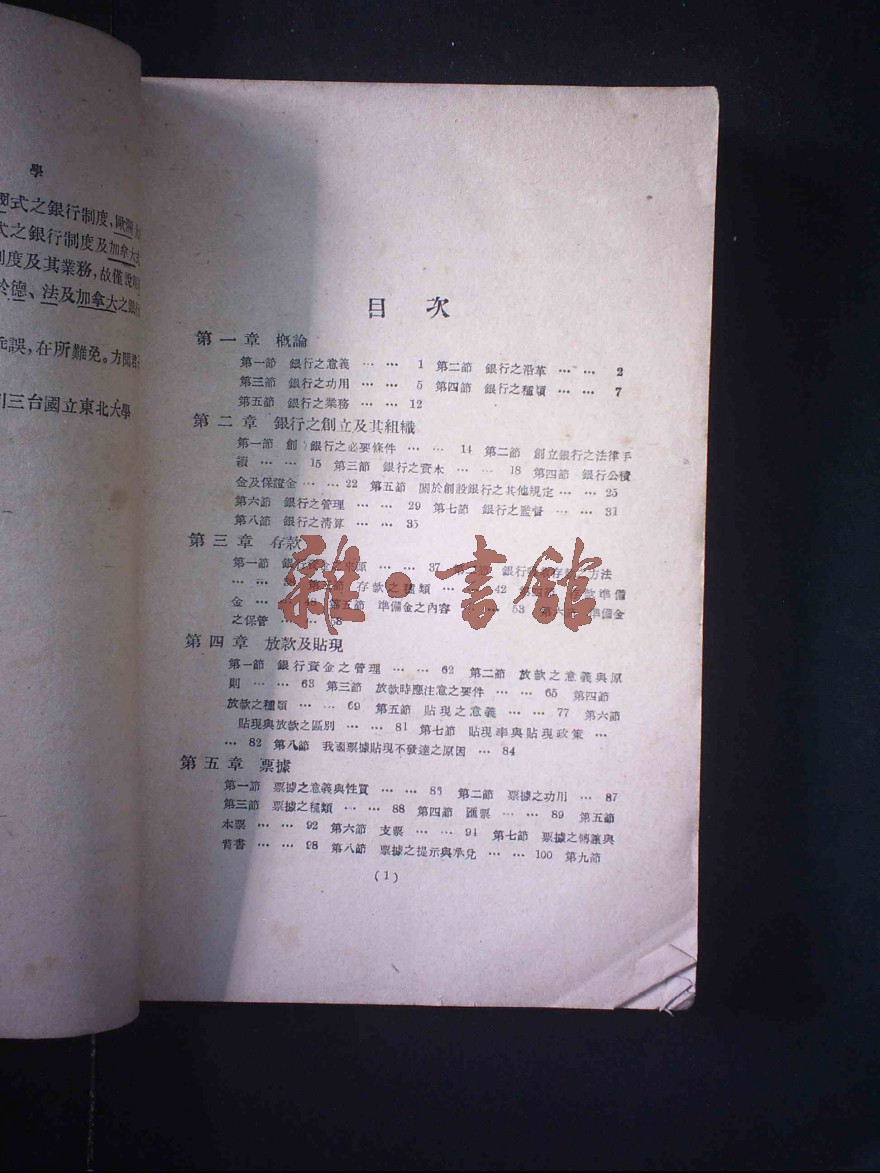 學
式之銀行制度，歐洲大
式之銀行制度及加拿大式
制度及其業務，故僅說明
於德、法及加拿大之銀行
誤，在所難免。方聞君
三台國立東北大學
目次
第一章 概論
第一節 銀行之意義 …… 1 第二節 銀行之沿革 …… 2
第三節 銀行之功用 …… 5 第四節 銀行之種類 …… 7
第五節 銀行之業務 …… 12
第二章 銀行之創立及其組織
第一節 創 銀行之必要條件 …… 14 第二節 創立銀行之法律手
續 …… 15 第三節 銀行之資本 …… 18 第四節 銀行公積
金及保證金 …… 22 第五節 關於創設銀行之其他規定 …… 25
第六節 銀行之管理 …… 29 第七節 銀行之監督 …… 31
第八節 銀行之清算 …… 35
第三章 存款
第一節 銀行資金之 原 …… 37 第 節 銀行 存 方法
…… 第 節 存款之種類 …… 42 第四節 存款準備
金 …… 第五節 準備金之內容 …… 53 第六節 準備金
之保管 …… 8
雜·書館
第四章 放款及貼現
第一節 銀行資金之管理 …… 62 第二節 放款之意義與原
則 …… 63 第三節 放款時應注意之要件 …… 65 第四節
放款之種類 …… 69 第五節 貼現之意義 …… 77 第六節
貼現與放款之區別 …… 81 第七節 貼現率與貼現政策 …
… 82 第八節 我國票據貼現不發達之原因 … 84
第五章 票據
第一節 票據之意義與性質 …… 86 第二節 票據之功用 … 87
第三節 票據之種類 …… 88 第四節 匯票 …… 89 第五節
本票 …… 92 第六節 支票 …… 94 第七節 票據之轉讓與
背書 …… 98 第八節 票據之提示與承兌 …… 100 第九節
(1)